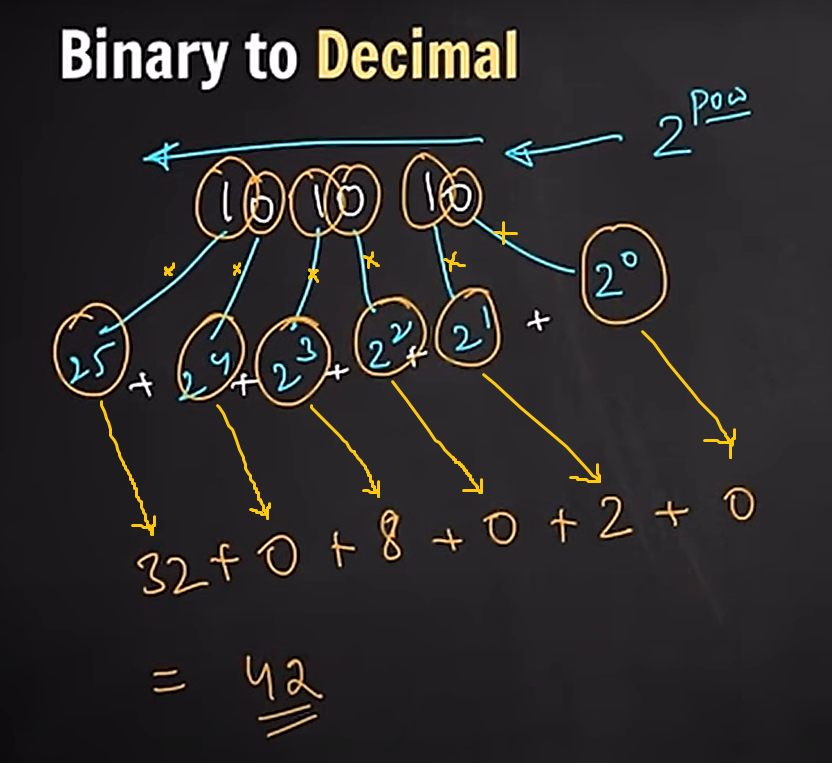 Binary to Decimal
2^Pow
1 0 1 0 1 0
× × × × × ×
2^5 + 2^4 + 2^3 + 2^2 + 2^1 + 2^0
32 + 0 + 8 + 0 + 2 + 0
= 42